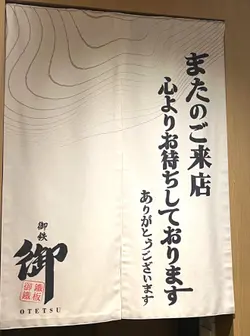 またのご来店
心よりお待ちしております
ありがとうございます
御鉄
御
鐵板
御鐵
OTETSU